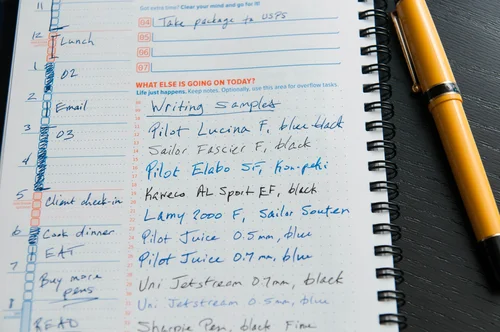 11
12 Lunch
1 02
2 Email
3 03
4
5 Client check-in
6 Cook dinner
7 EAT
Buy more
pens
8 READ
Got extra time? Clear your mind and go for it!
04 Take package to USPS
05
06
07
WHAT ELSE IS GOING ON TODAY?
Life just happens. Keep notes. Optionally, use this area for overflow tasks.
Writing Samples
Pilot Lucina F, blue-black
Sailor Fascier F, black
Pilot Elabo SF, Kon-peki
Kaweco AL Sport EF, black
Lamy 2000 F, Sailor Souten
Pilot Juice 0.5mm, blue
Pilot Juice 0.7mm, blue
Uni Jetstream 0.7mm, black
Uni Jetstream 0.5mm, blue
Sharpie Pen, black Fine